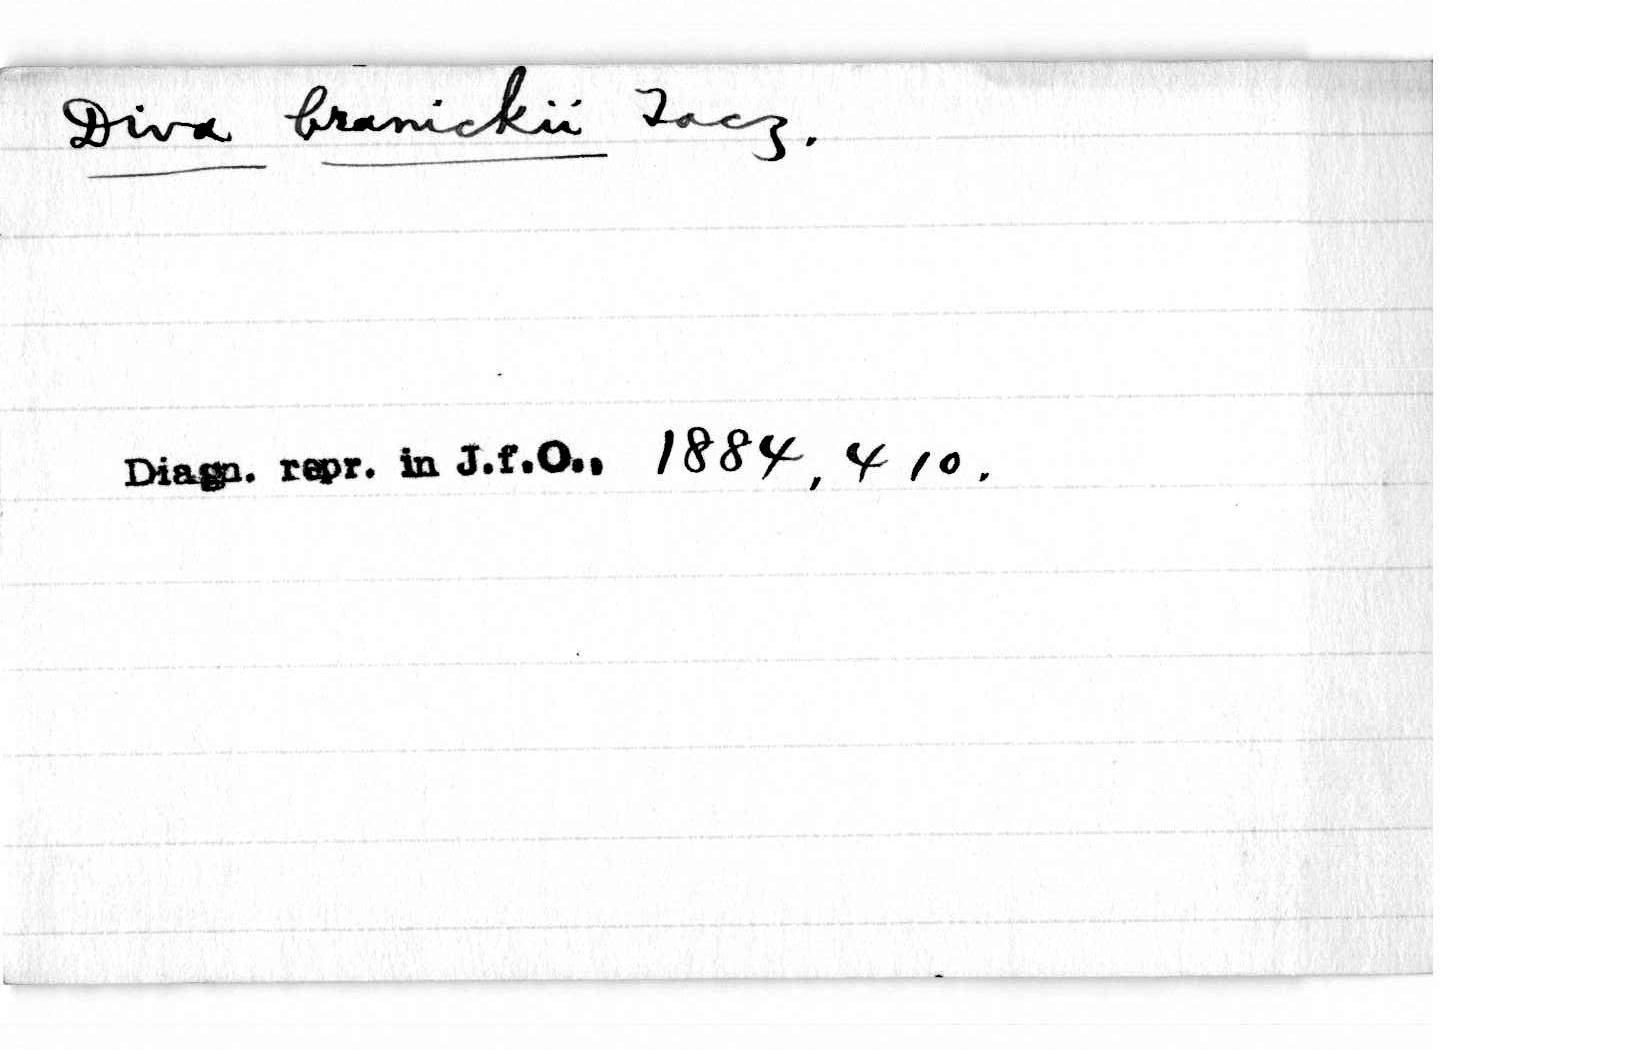 Diva branickii Tacz.
Diagn. repr. in J.f.O., 1884, 410.